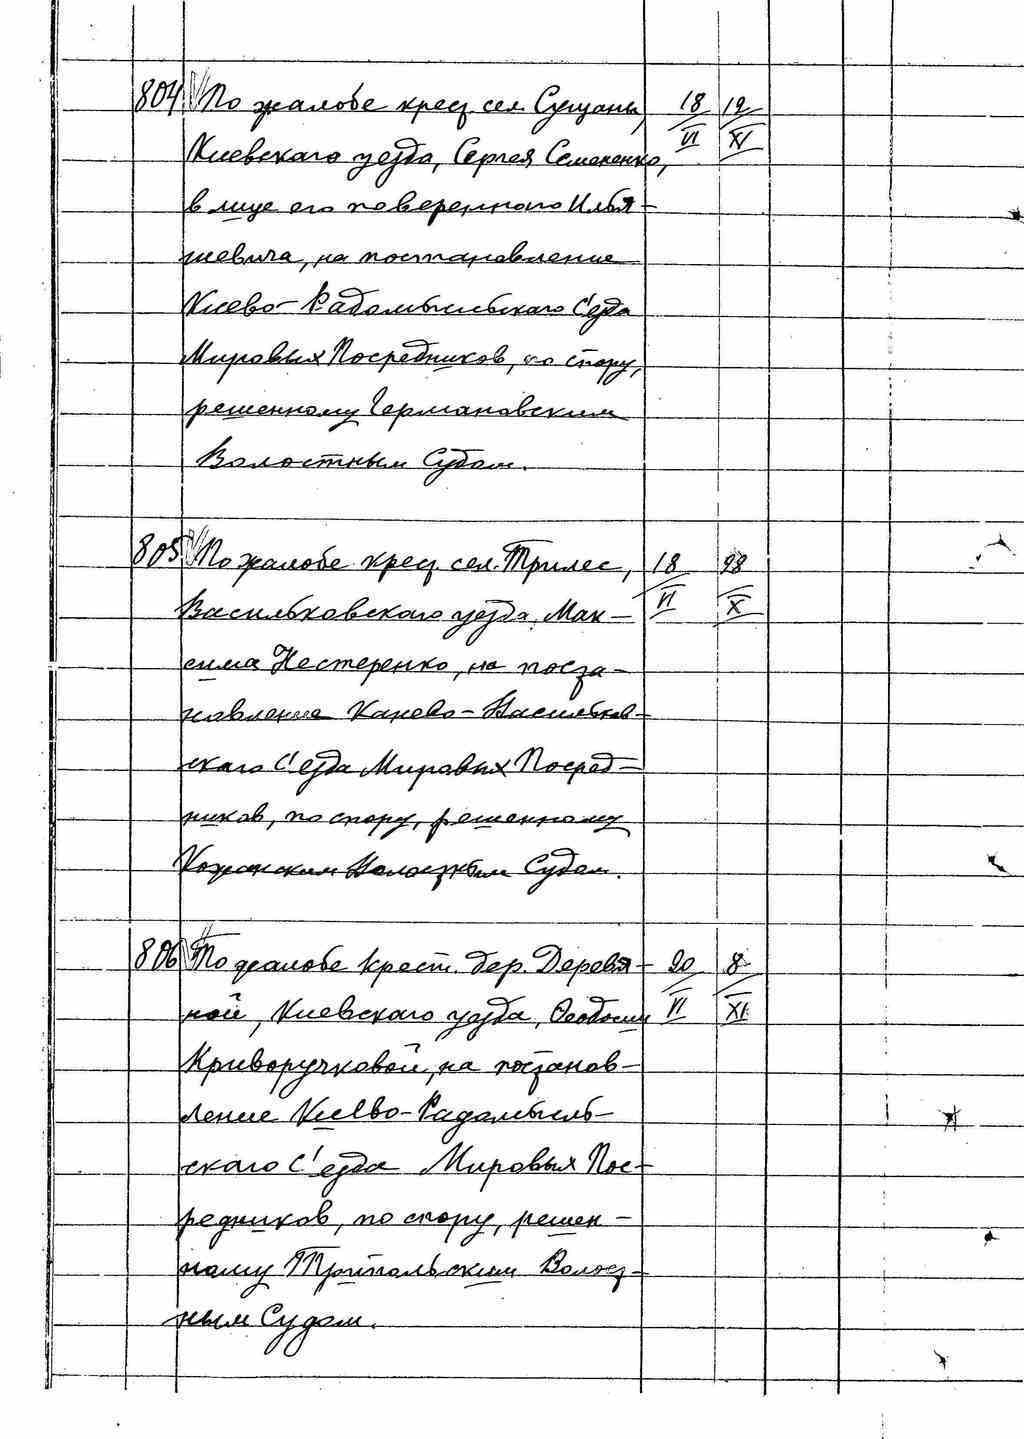 804 По жалобе крест. сел. Сущаны, 18 12
Киевского уезда, Сергея Семененко, VI XI
в лице его поверенного Ильяшевича
, на постановление
Киево-Радомысльского С'езда
Мировых Посредников, по спору,
решенному Германовским
Волостным Судом.
805 По жалобе крест. сел. Трилес, 18 28
Васильковского уезда, Мак- VI X
сима Нестеренко, на поста-
новление Канево-Васильков-
ского С'езда Мировых Посред-
ников, по спору, решенному
Кожанским Волостным Судом.
806 По жалобе крест. дер. Деревя- 20 8
ной, Киевского уезда, VI XI
Криворучковой, на постанов-
ление Киево-Радомысль-
ского С'езда Мировых Пос-
редников, по спору, решен-
ному Трипольским Волост-
ным Судом.